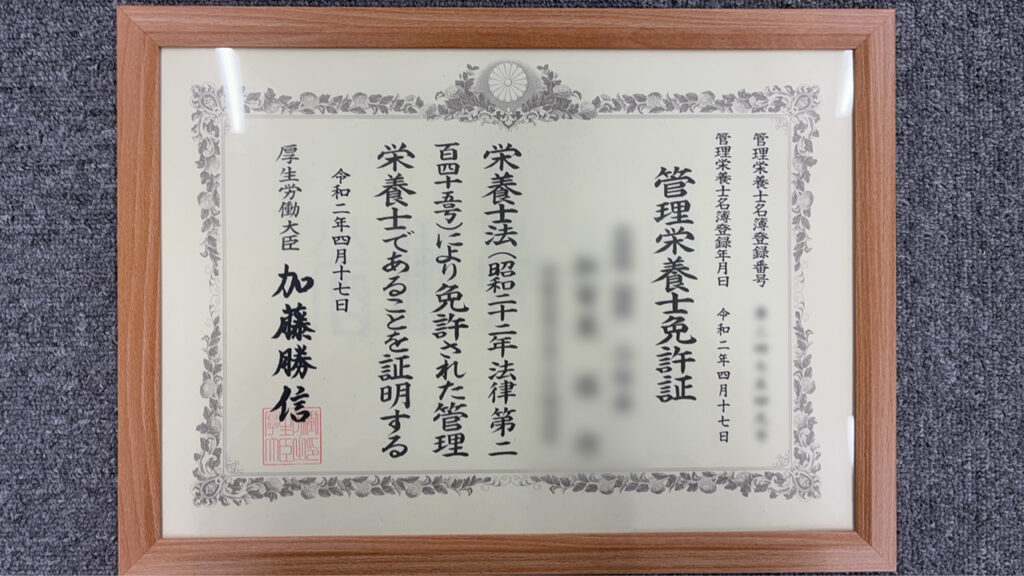 管理栄養士名簿登録番号
管理栄養士名簿登録年月日 令和二年四月十七日
管理栄養士免許証
栄養士法(昭和二十二年法律第二
百四十五号)により免許された管理
栄養士であることを証明する
令和二年四月十七日
厚生労働大臣 加藤勝信